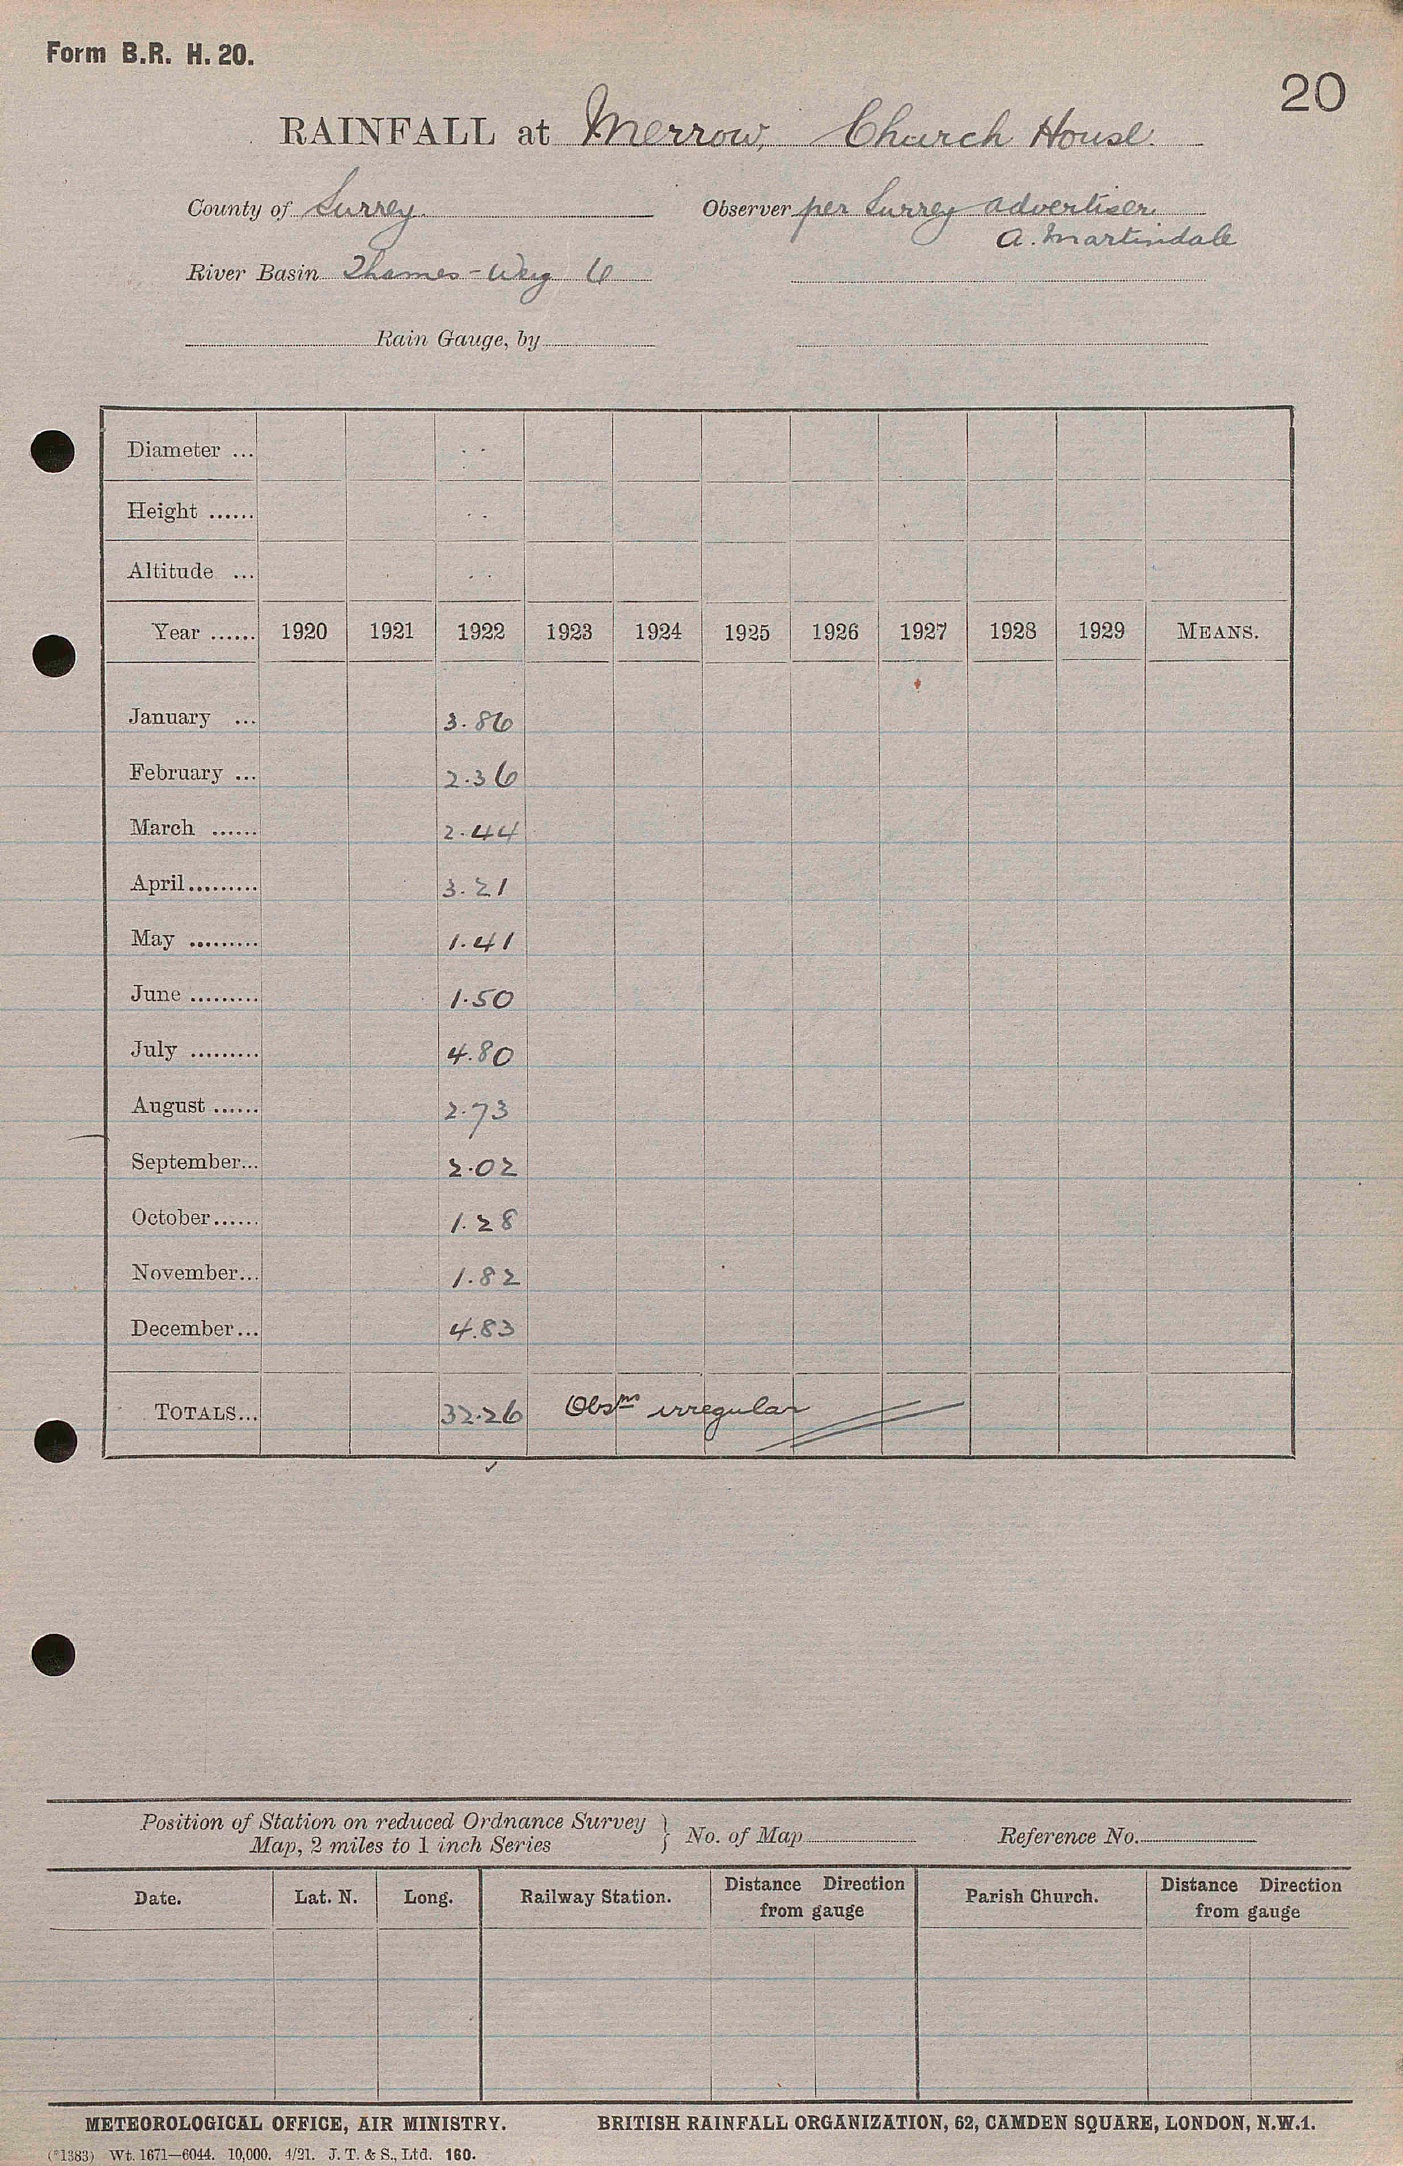 Form B.R. H. 20.
20
RAINFALL at Merrow, Church House.
County of Surrey. Observer per Surrey Advertiser.
A. Martindale
River Basin Thames - Wey 6
Rain Gauge, by
Diameter ...
Height ......
Altitude ...
Year ...... 1920 1921 1922 1923 1924 1925 1926 1927 1928 1929 MEANS.
January ... 3.86
February ... 2.36
March ...... 2.44
April ......... 3.21
May ......... 1.41
June ......... 1.50
July ......... 4.80
August ...... 2.73
September... 2.02
October ...... 1.28
November... 1.82
December... 4.83
TOTALS... 32.26 Obsns irregular
✓
Position of Station on reduced Ordnance Survey
Map, 2 miles to 1 inch Series } No. of Map Reference No.
Date. Lat. N. Long. Railway Station. Distance Direction from gauge Parish Church. Distance Direction from gauge
METEOROLOGICAL OFFICE, AIR MINISTRY. BRITISH RAINFALL ORGANIZATION, 62, CAMDEN SQUARE, LONDON, N.W.1.
(*1383) Wt. 1671—6044. 10,000. 4/21. J. T. & S., Ltd. 160.